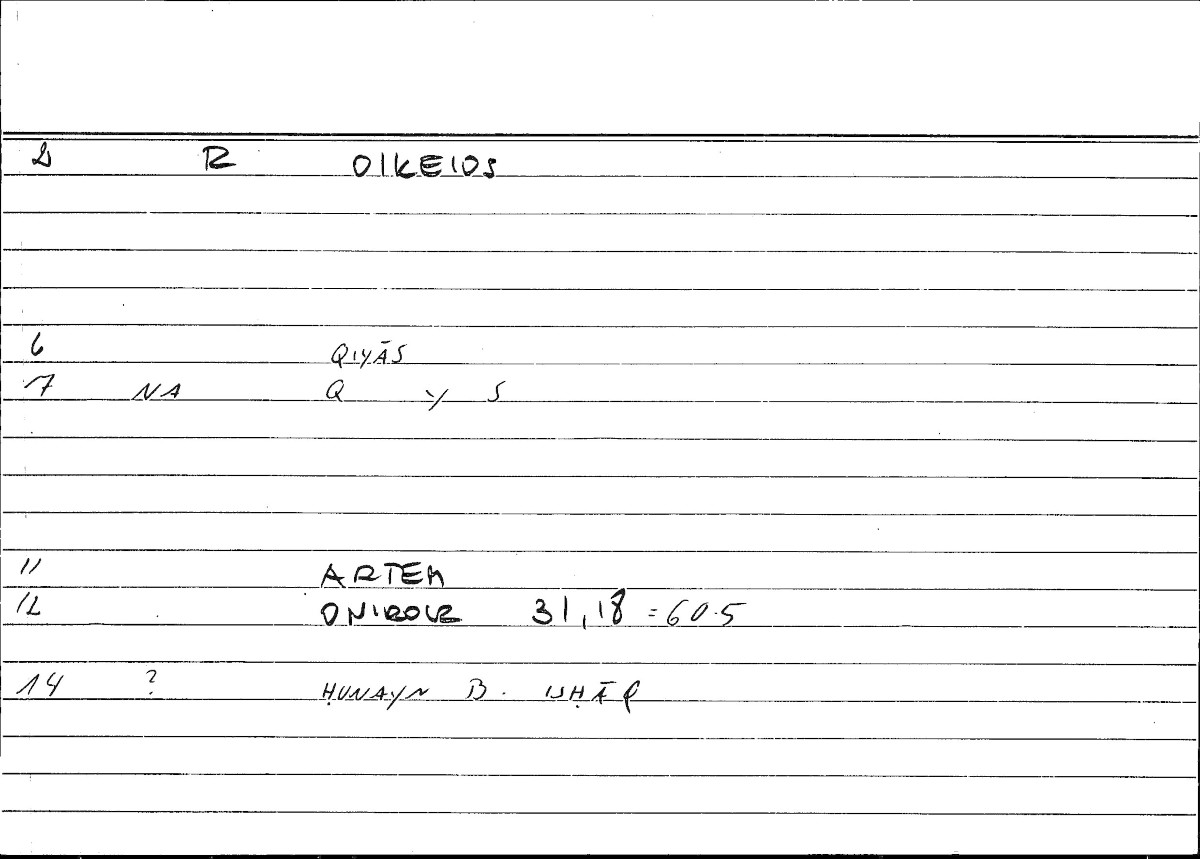 2 R OIKEIOS
6 QIYĀS
7 NA Q Y S
11 ARTEM
12 ONIROCR 31,18 = 60.5
14 ? ḤUNAYN B. ISḤĀQ